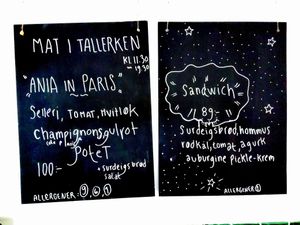 MAT I TALLERKEN
KL 11.30
- 19.30
"ANIA IN PARIS"
Selleri, Tomat, Hvitløk
Champignons, gulrot
POTET
100-
+ surdeigsbrød
salat
ALLERGENER:
Sandwich
89-
Surdeigsbrød, hommus
rødkål, tomat, agurk
auburgine pickle-krem
ALLERGENER